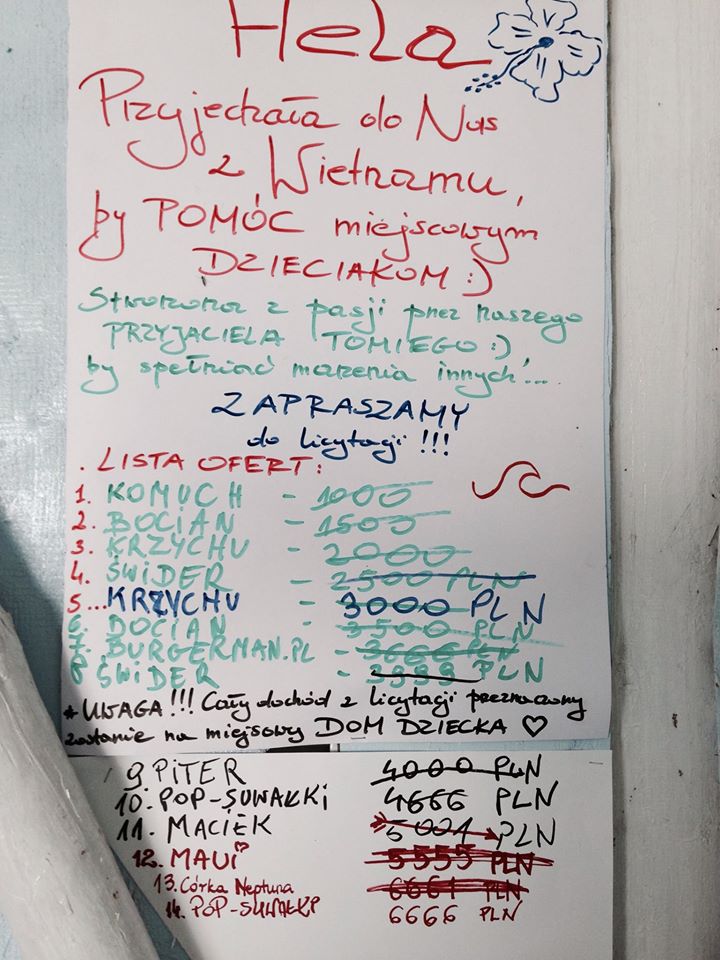 Hela
Przyjechała do Nas
z Wietnamu,
by POMÓC miejscowym
DZIECIAKOM :)
Stworzona z pasji przez naszego
PRZYJACIELA TOMIEGO :),
by spełniać marzenia innych...
ZAPRASZAMY
do licytacji !!!
. LISTA OFERT:
1. KOMUCH - 1000
2. BOCIAN - 1500
3. KRZYCHU - 2000
4. ŚWIDER - 2500 PLN
5... KRZYCHU - 3000 PLN
6. BOCIAN - 3500 PLN
7. BURGERMAN.PL - 3666 PLN
8 ŚWIDER - 3999 PLN
* UWAGA!!! Cały dochód z licytacji przeznaczony
zostanie na miejscowy DOM DZIECKA ♡
9. PiTER 4000 PLN
10. POP-SUWAŁKI 4666 PLN
11. MACIEK 5001 PLN
12. MAUi 5555 PLN
13. Córka Neptuna 6661 PLN
14. POP-SUWAŁKI 6666 PLN